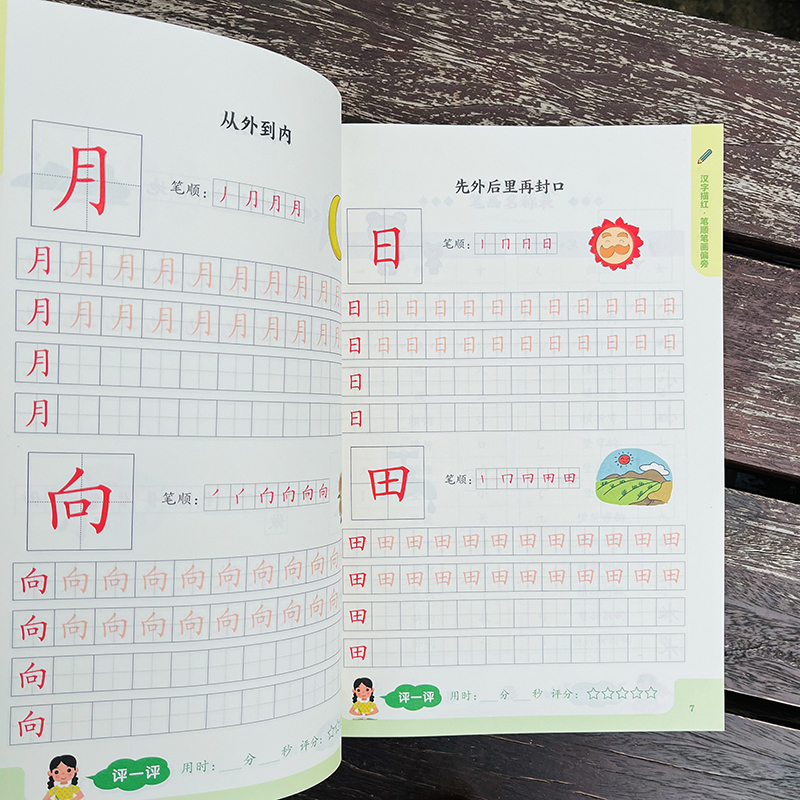 从外到内
月
笔顺：丿 ⺆ 月 月
月 月 月 月 月 月 月 月 月
月 月 月 月 月 月 月 月 月
月
月
向
笔顺：向
向 向 向 向 向 向 向 向 向
向 向 向 向 向 向 向 向 向
向
向
评一评 用时：__分__秒 评分：☆
先外后里再封口
日
笔顺：丨 冂 日 日
日 日 日 日 日 日 日 日 日 日 日 日 日
日 日 日 日 日 日 日 日 日 日 日 日 日
日
日
田
笔顺：丨 冂 田 田
田 田 田 田 田 田 田 田 田 田 田 田
田 田 田 田 田 田 田 田 田 田 田 田
田
田
评一评 用时：__分 秒 评分：☆☆☆☆☆
汉字描红·笔顺笔画偏旁
7